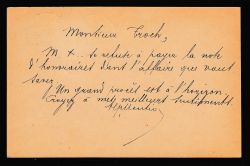 Monsieur Croch,
M X. se refuse à payer la note
d'honoraires dont l'affaire que vous
savez.
Un grand procès est à l'horizon
Croyez à mes meilleurs sentiments.